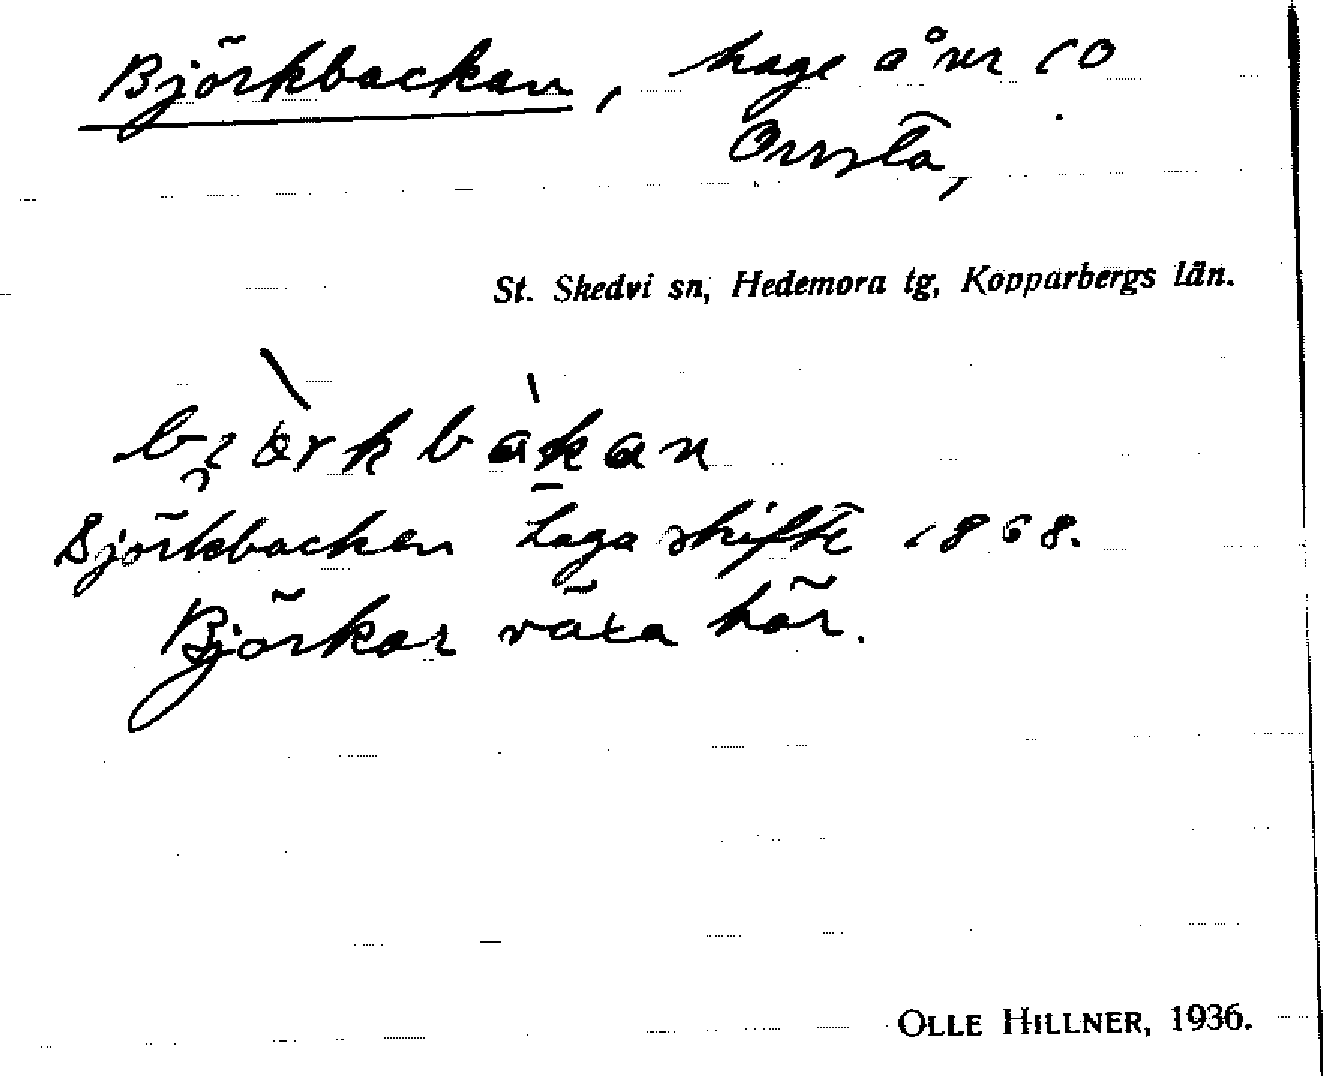 Björkbackan, hage åvr 10
Orrsta,
St. Skedvi sn, Hedemora tg, Kopparbergs län.
Björkbacken Laga skifte 1868.
Björkar växa här.
OLLE HILLNER, 1936.